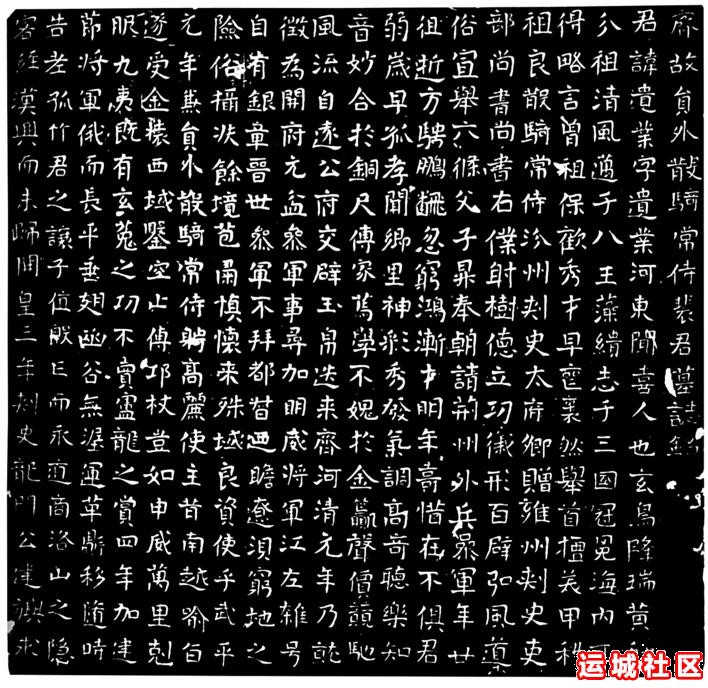 齊故員外散騎常侍裴君墓誌銘
君諱遺業字遺業河東聞喜人也玄鳥降瑞黃
分祖清風邁于八王藻繢志于三國冠冕海內
得略言曾祖保歡秀才早裒然舉首擅美甲科
祖良散騎常侍汾州刺史太府卿贈雍州刺史吏
部尚書尚書右僕射樹德立功儀形百辟弘風導
俗宣舉六條父子昇奉朝請荊州外兵參軍年廿
徂逝方騁鵬翻忽窮鴻漸才明年壽惜在不俱君
弱歲早孤孝聞鄉里神彩秀發氣調高奇聽樂知
音妙合於銅尺傳家舊學不媿於金籯聲價競馳
風流自遠公府交辟玉帛迭來齊河清元年乃就
徵為開府元孟參軍事尋加明威將軍江左雜号
自有銀章晉世參軍不拜都督迴瞻遼浿窮地之
險俗攝狄餘境苞肅慎懷來殊域良資使乎武平
元年兼員外散騎常侍聘高麗使主昔南越喻白
遂受金裝西域鑿空止傳邛杖豈如申威萬里剋
服九夷既有玄菟之功不賣盧龍之賞四年加建
節將軍俄而長平垂翅函谷無泥運革鼎移隨時
告老孤竹君之讓子位殷亡而永逝商洛山之隱
客經漢興而未歸開皇三年刺史龍門公建旟求
运城社区